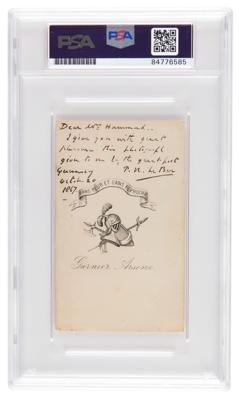 PSA
PSA
84776585
Dear Mrs Hammond..
I give you with great
pleasure this photograph
given to me by the great poet
Guernsey
P. N. Le Ber
October 20
1867
SANS PEUR ET SANS REPROCHE
Garnier Arsene